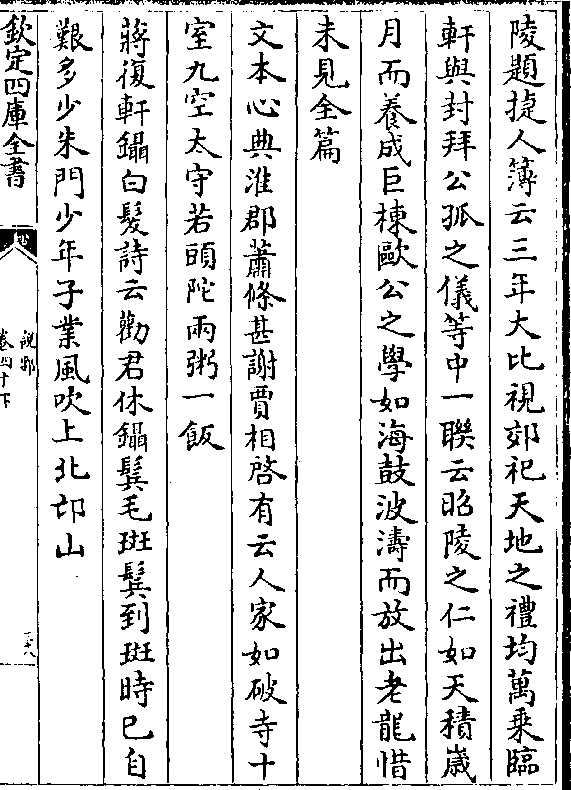 陵題㨗人簿云三年大比視郊祀天地之禮均萬乗臨
軒與封拜公孤之儀等中一聨云昭陵之仁如天積嵗
月而養成巨棟歐公之學如海鼓波濤而放出老龍惜
未見全篇
文本心典淮郡蕭條甚謝賈相啓有云人家如破寺十
室九空太守若頭陀兩粥一飯
蔣復軒鑷白髪詩云勸君休鑷鬂毛斑鬂到斑時已自
艱多少朱門少年子業風吹上北邙山
欽定四庫全書
説郛
卷四十下